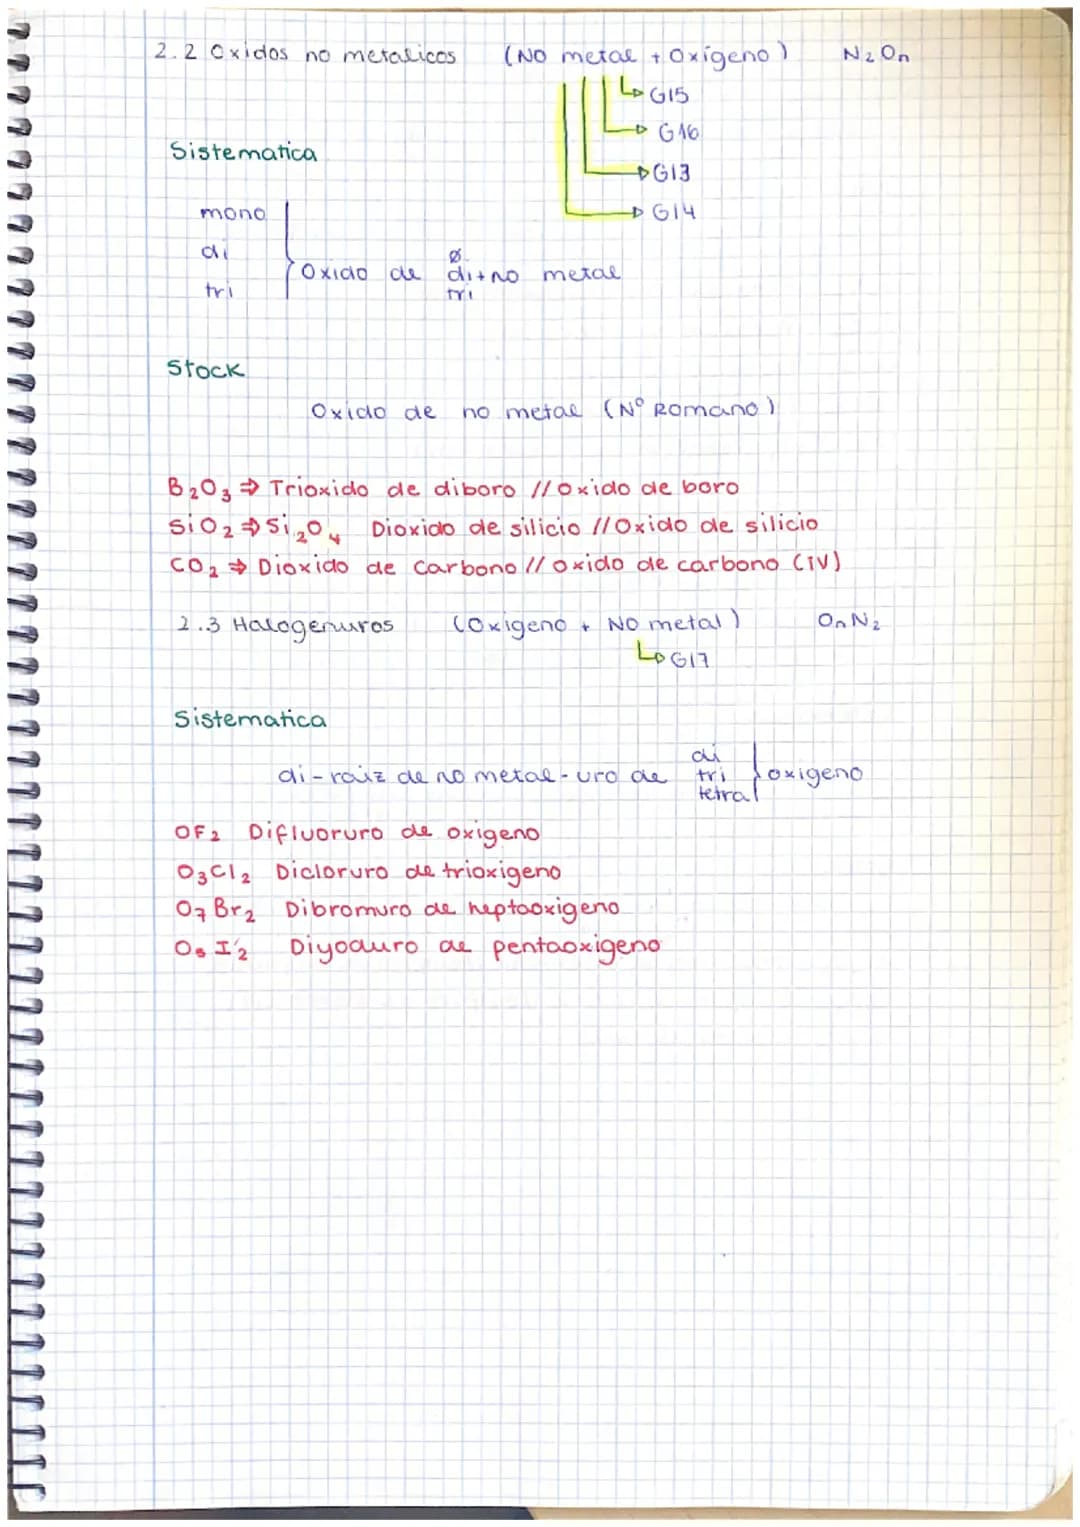 2.2 Oxidos no metalicos (NO metal + Oxígeno) N₂On
G15
G16
Sistematica
G13
mono
G14
di
tri
Oxido de Ø di tri + no metal
Stock
Oxido de no metal (Nº Romano)
B₂O₃ ⇒ Trioxido de diboro // Oxido de boro
SiO₂ ⇒ Si₂O₄ Dioxido de silicio // Oxido de silicio
CO₂ ⇒ Dioxido de Carbono // oxido de carbono (IV)
2.3 Halogenuros (Oxigeno + NO metal) OnN₂
G17
Sistematica
di-raiz de no metal-uro de di tri tetra oxigeno
OF₂ Difluoruro de oxigeno
O₃Cl₂ Dicloruro de trioxigeno
O₇Br₂ Dibromuro de heptaoxigeno
O₅I₂ Diyoduro de pentaoxigeno